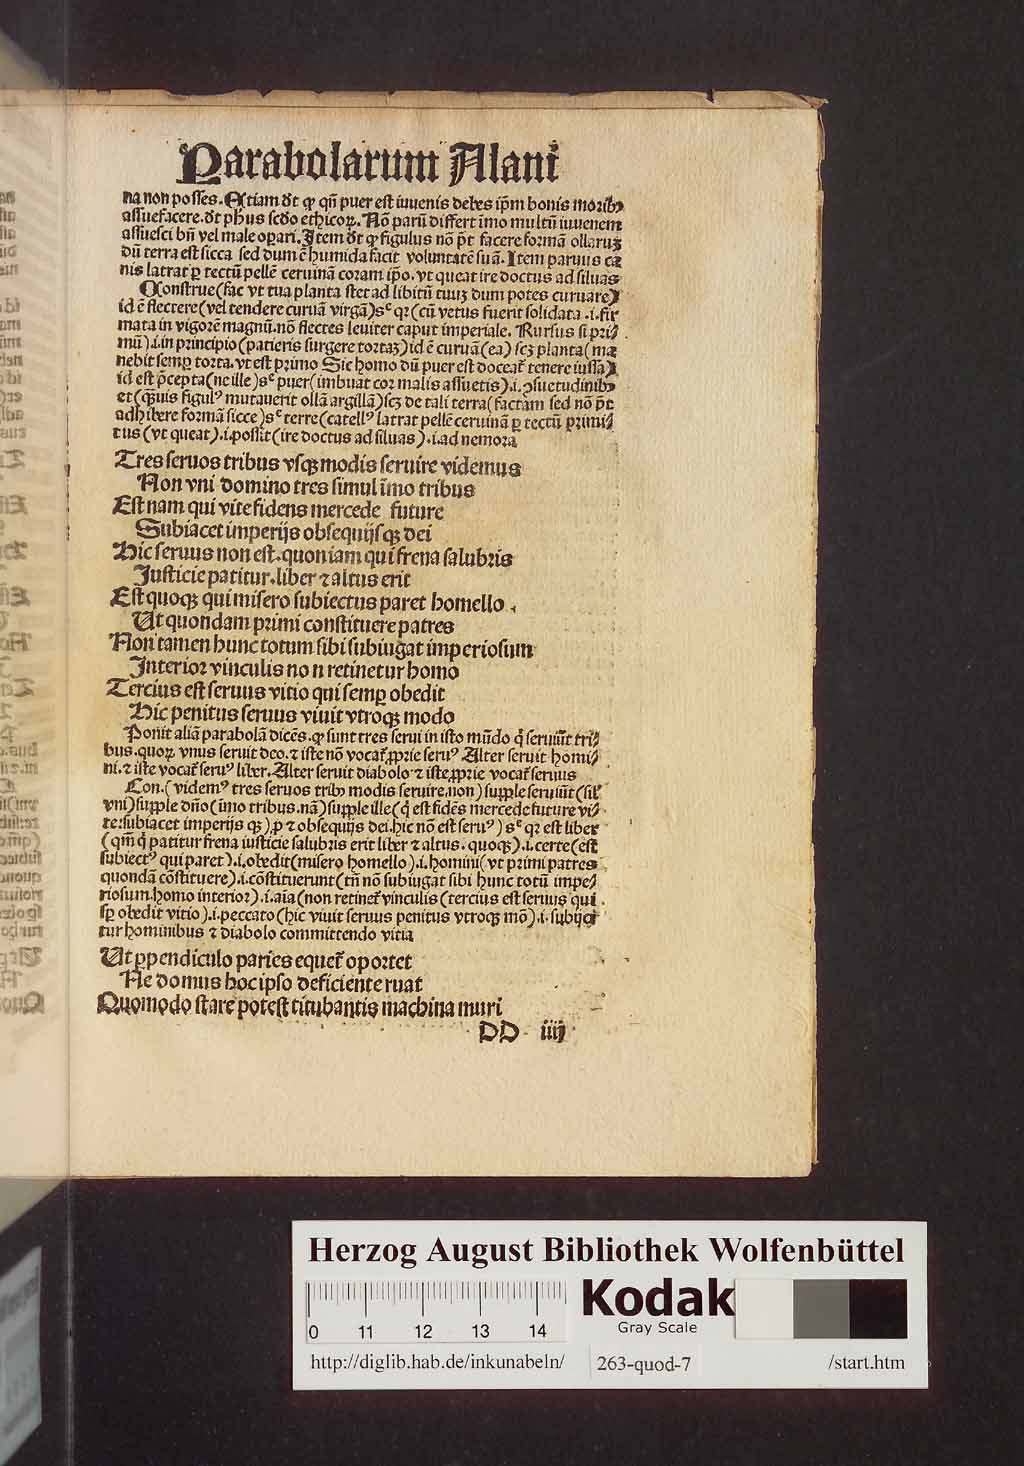 Parabolarum Alani
na non posses. Etiam dt̄ ꝙ qn̄ puer est iuuenis debes ip̄m bonis moribꝰ
assuefacere. dt̄ ph̄us scd̄o ethicoꝝ. Nō parū differt īmo multū iuuenem
assuesci bn̄ vel male oꝑari. Item dt̄ ꝙ figulus nō pt̄ facere formā ollaruꝫ
dū terra est sicca sed dum ē humida facit voluntatē suā. Item paruus ca
nis latrat ꝑ tectū pellē ceruinā coram ip̄o. vt queat ire doctus ad siluas
Construe (fac vt tua planta stet ad libitū tuuꝫ dum potes curuare)
id ē flectere (vel tendere curuā virgā) sᶜ qꝛ (cū vetus fuerit solidata .i. fir
mata in vigorē magnū. nō flectes leuiter caput imperiale. Rursus si pri⸗
mū) .i. in principio (patieris surgere tortaꝫ) id ē curuā (ea) scꝫ planta (ma
nebit semꝑ torta. vt est primo Sic homo dū puer est doceat᷑ tenere iussa)
id est p̄cepta (ne ille) sᶜ puer (imbuat cor malis assuetis) .i. ꝯsuetudinibꝰ
et (qᷓuis figulꝰ mutauerit ollā argillā) scꝫ de tali terra (factam sed nō pt̄
adhibere formā sicce) sᶜ terre (catellꝰ latrat pellē ceruinā ꝑ tectū primi⸗
tus (vt queat) .i. possit (ire doctus ad siluas) .i. ad nemora
Tres seruos tribus vsqꝫ modis seruire videmus
Non vni domino tres simul īmo tribus
Est nam qui vite fidens mercede future
Subiacet imperijs obsequijsqꝫ dei
Hic seruus non est. quoniam qui frena salubris
Iusticie patitur. liber ⁊ altus erit
Est quoqꝫ qui misero subiectus paret homello.
Ut quondam primi constituere patres
Non tamen hunc totum sibi subiugat imperiosum
Interior vinculis non retinetur homo
Tercius est seruus vitio qui semꝑ obedit
Hic penitus seruus viuit vtroqꝫ modo
Ponit aliā parabolā dicēs. ꝙ sunt tres serui in isto mūdo q̄ seruiūt tri⸗
bus. quoꝝ vnus seruit deo. ⁊ iste nō vocat᷑ ꝓprie seruꝰ Alter seruit homi⸗
ni. ⁊ iste vocat᷑ seruꝰ liber. Alter seruit diabolo ⁊ iste ꝓprie vocat᷑ seruus
Con. (videmꝰ tres seruos tribꝰ modis seruire. non) supple seruiūt (sil̄
vni) supple dn̄o (īmo tribus. nā) supple ille (q̄ est fidēs mercede future vi⸗
te: subiacet imperijs qꝫ) ꝓ ⁊ obsequijs dei. hic nō est seruꝰ) sᶜ qꝛ est liber
(qm̄ q̄ patitur frena iusticie salubris erit liber ⁊ altus. quoqꝫ) .i. certe (est
subiectꝰ qui paret) .i. obedit (misero homello) .i. homini (vt primi patres
quondā cōstituere) .i. cōstituerunt (tn̄ nō subiugat sibi hunc totū impe⸗
riosum. homo interior) .i. aīa (non retinet᷑ vinculis (tercius est seruus qui
sꝑ obedit vitio) .i. peccato (hic viuit seruus penitus vtroqꝫ mō) .i. subijci
tur hominibus ⁊ diabolo committendo vitia
Ut ꝑpendiculo paries equet᷑ oportet
Ne domus hoc ipso deficiente ruat
Quomodo stare potest titubantis machina muri
DD iiij
Herzog August Bibliothek Wolfenbüttel
0 11 12 13 14
Kodak
Gray Scale
http://diglib.hab.de/inkunabeln/ 263-quod-7 /start.htm